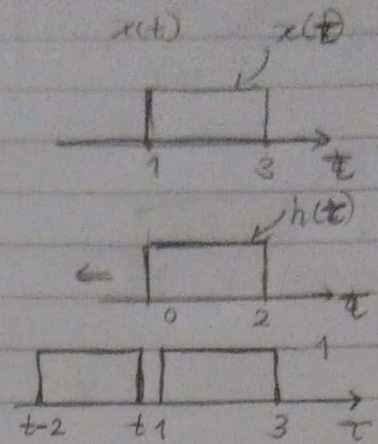 x(t) x(τ)
1 3 τ
h(τ)
0 2 τ
1
t-2 t 1 3 τ